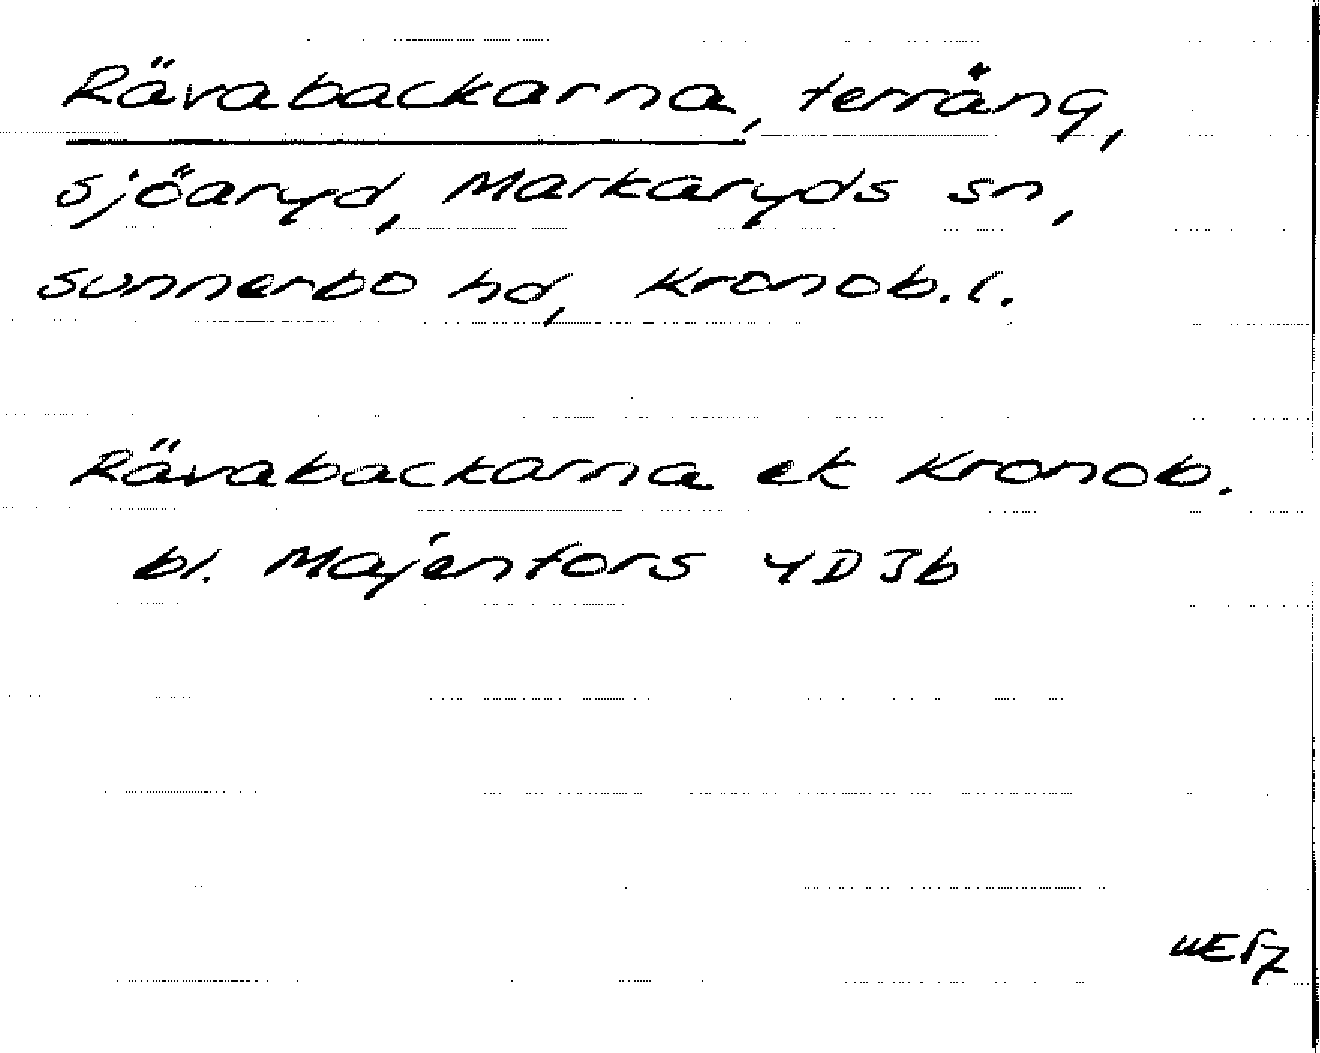 Rävabackarna, terräng,
Sjöaryd, Markaryds sn,
Sunnerbo hd, Kronob.l.
Rävabackarna ek Kronob.
bl. Majenfors 4D3b